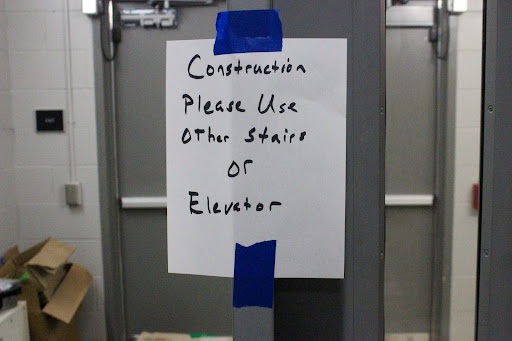 Construction
Please Use
Other Stairs
or
Elevator